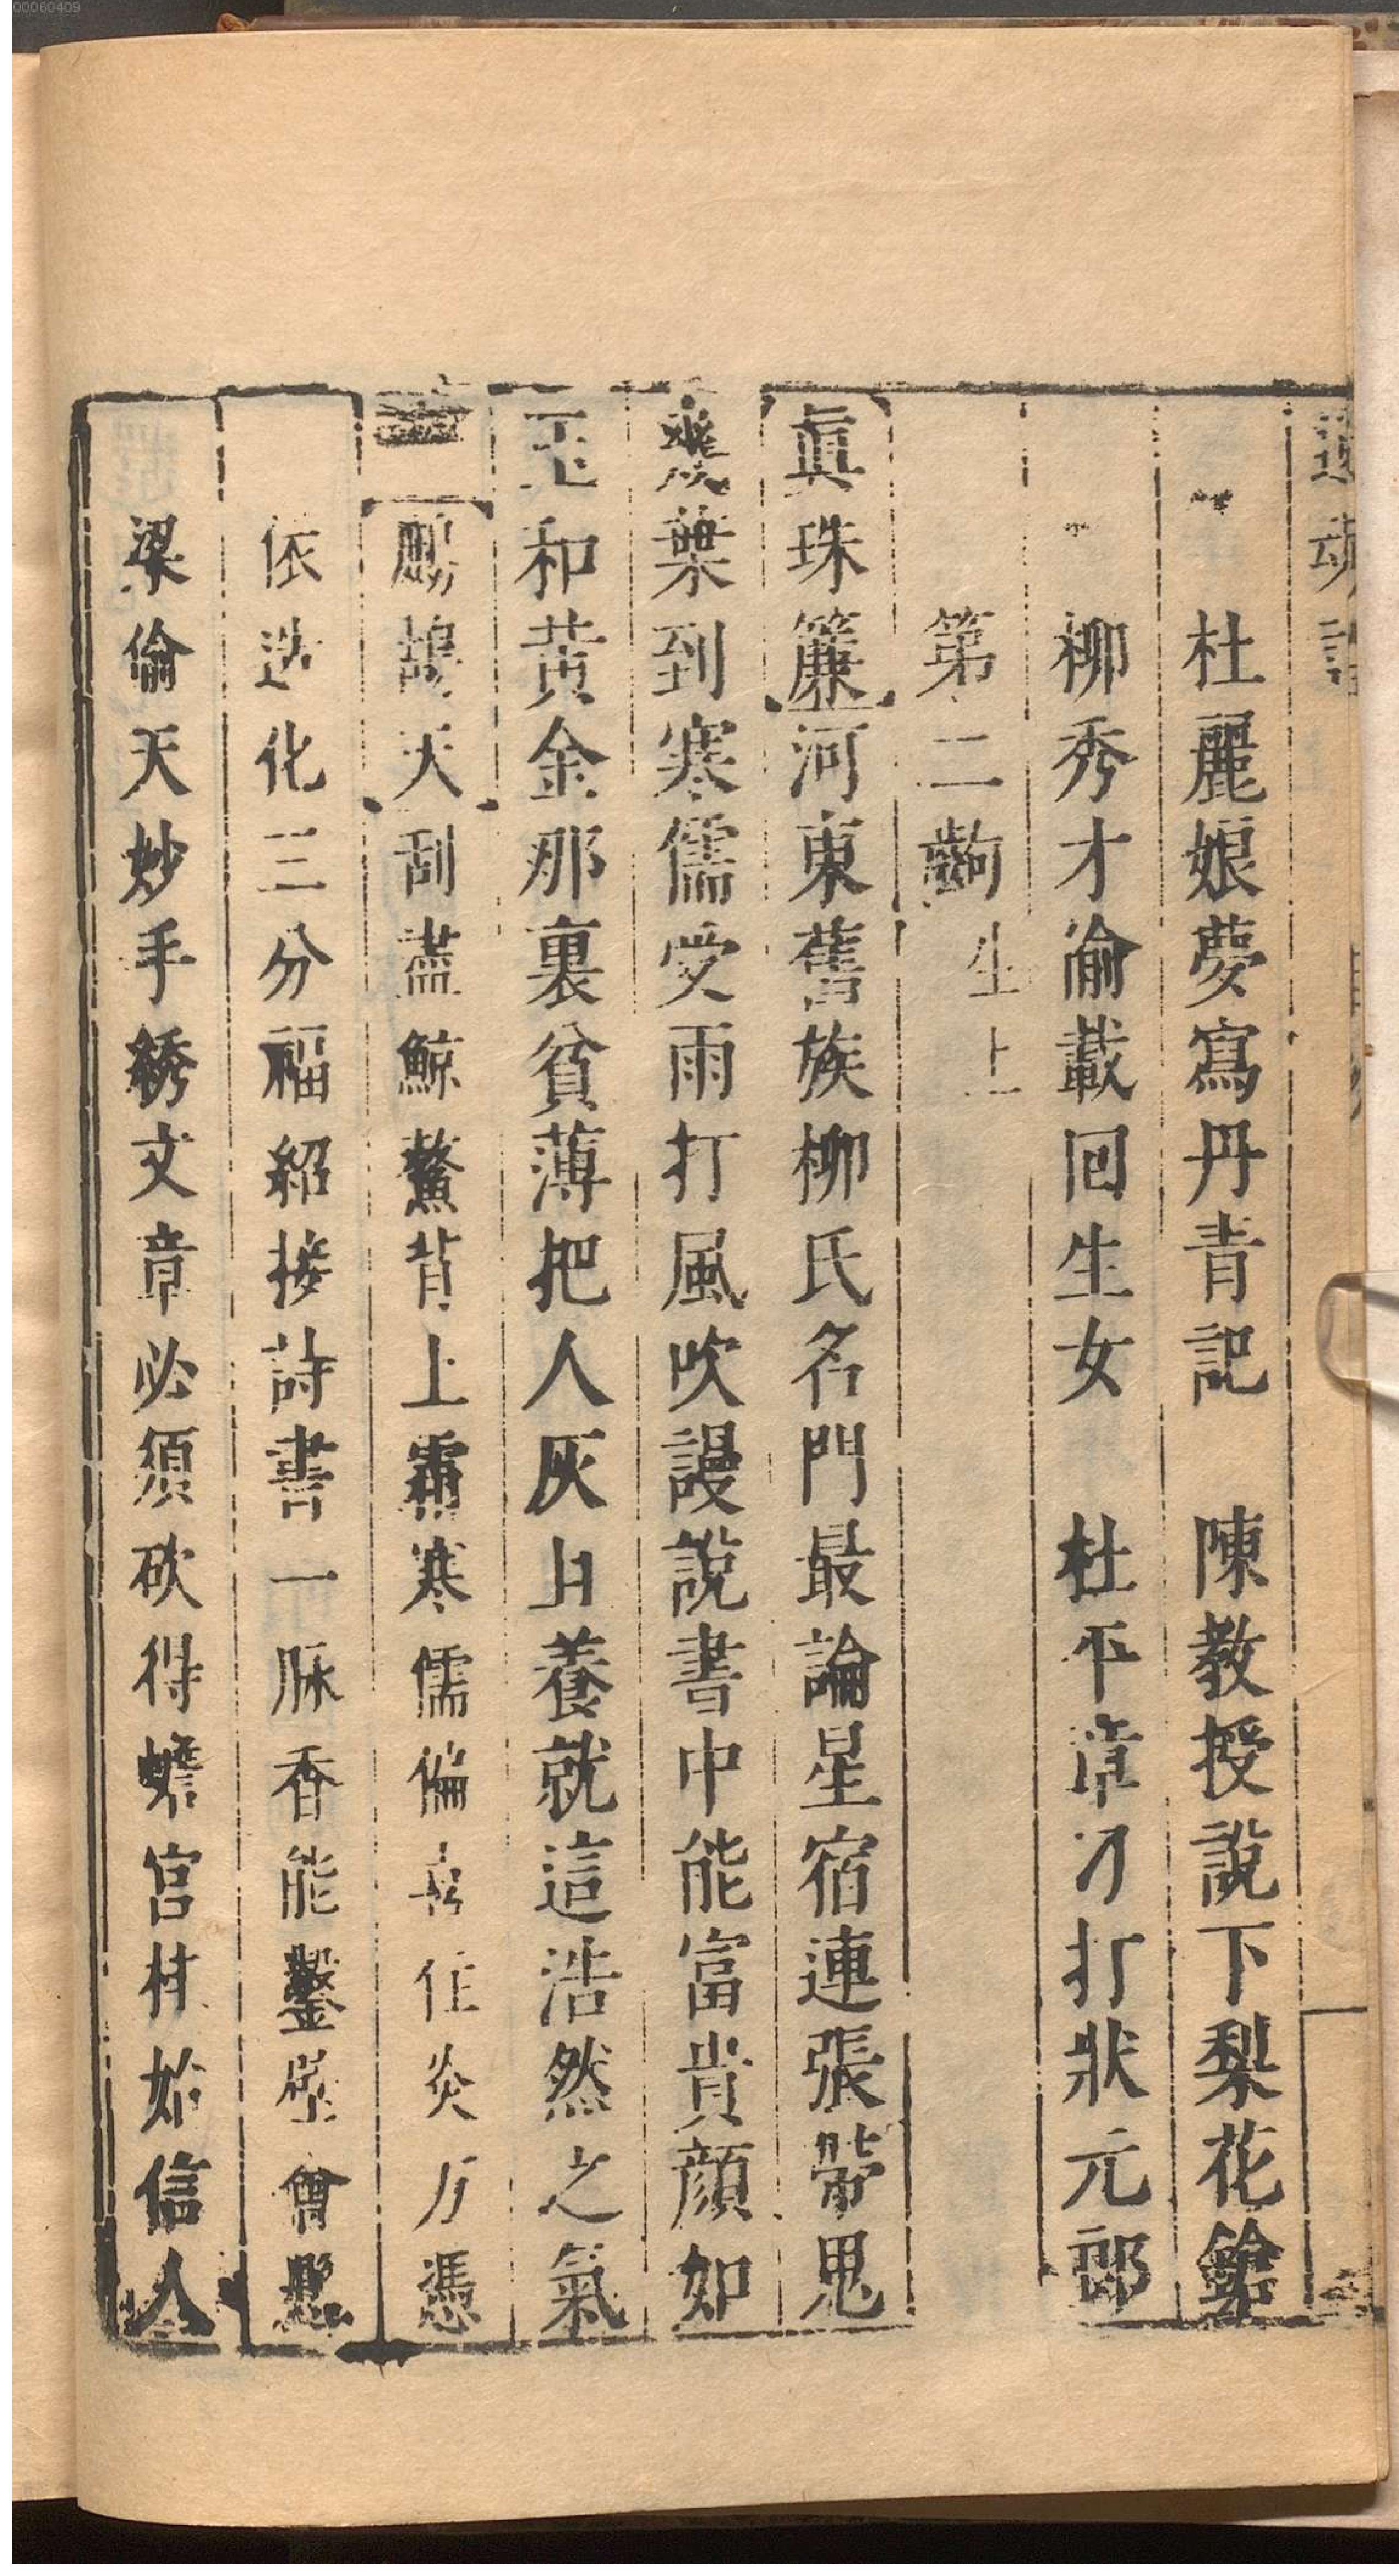 00060409
還魂記
杜麗娘夢寫丹青記　陳教授說下梨花鎗
柳秀才偷載回生女　杜平章刁打狀元郎
第二齣生上
眞珠簾河東舊族柳氏名門最論星宿連張帶鬼
葉到寒儒受雨打風吹謾說書中能富貴顏如
玉和黃金那裏貧薄把人灰且養就這浩然之氣
鷓鴣天刮盡鯨鰲背上霜寒儒偏喜住炎方憑
依造化三分福紹接詩書一脉香能鑿壁會懸
梁偷天妙手綉文章必須砍得蟾宮桂始信人